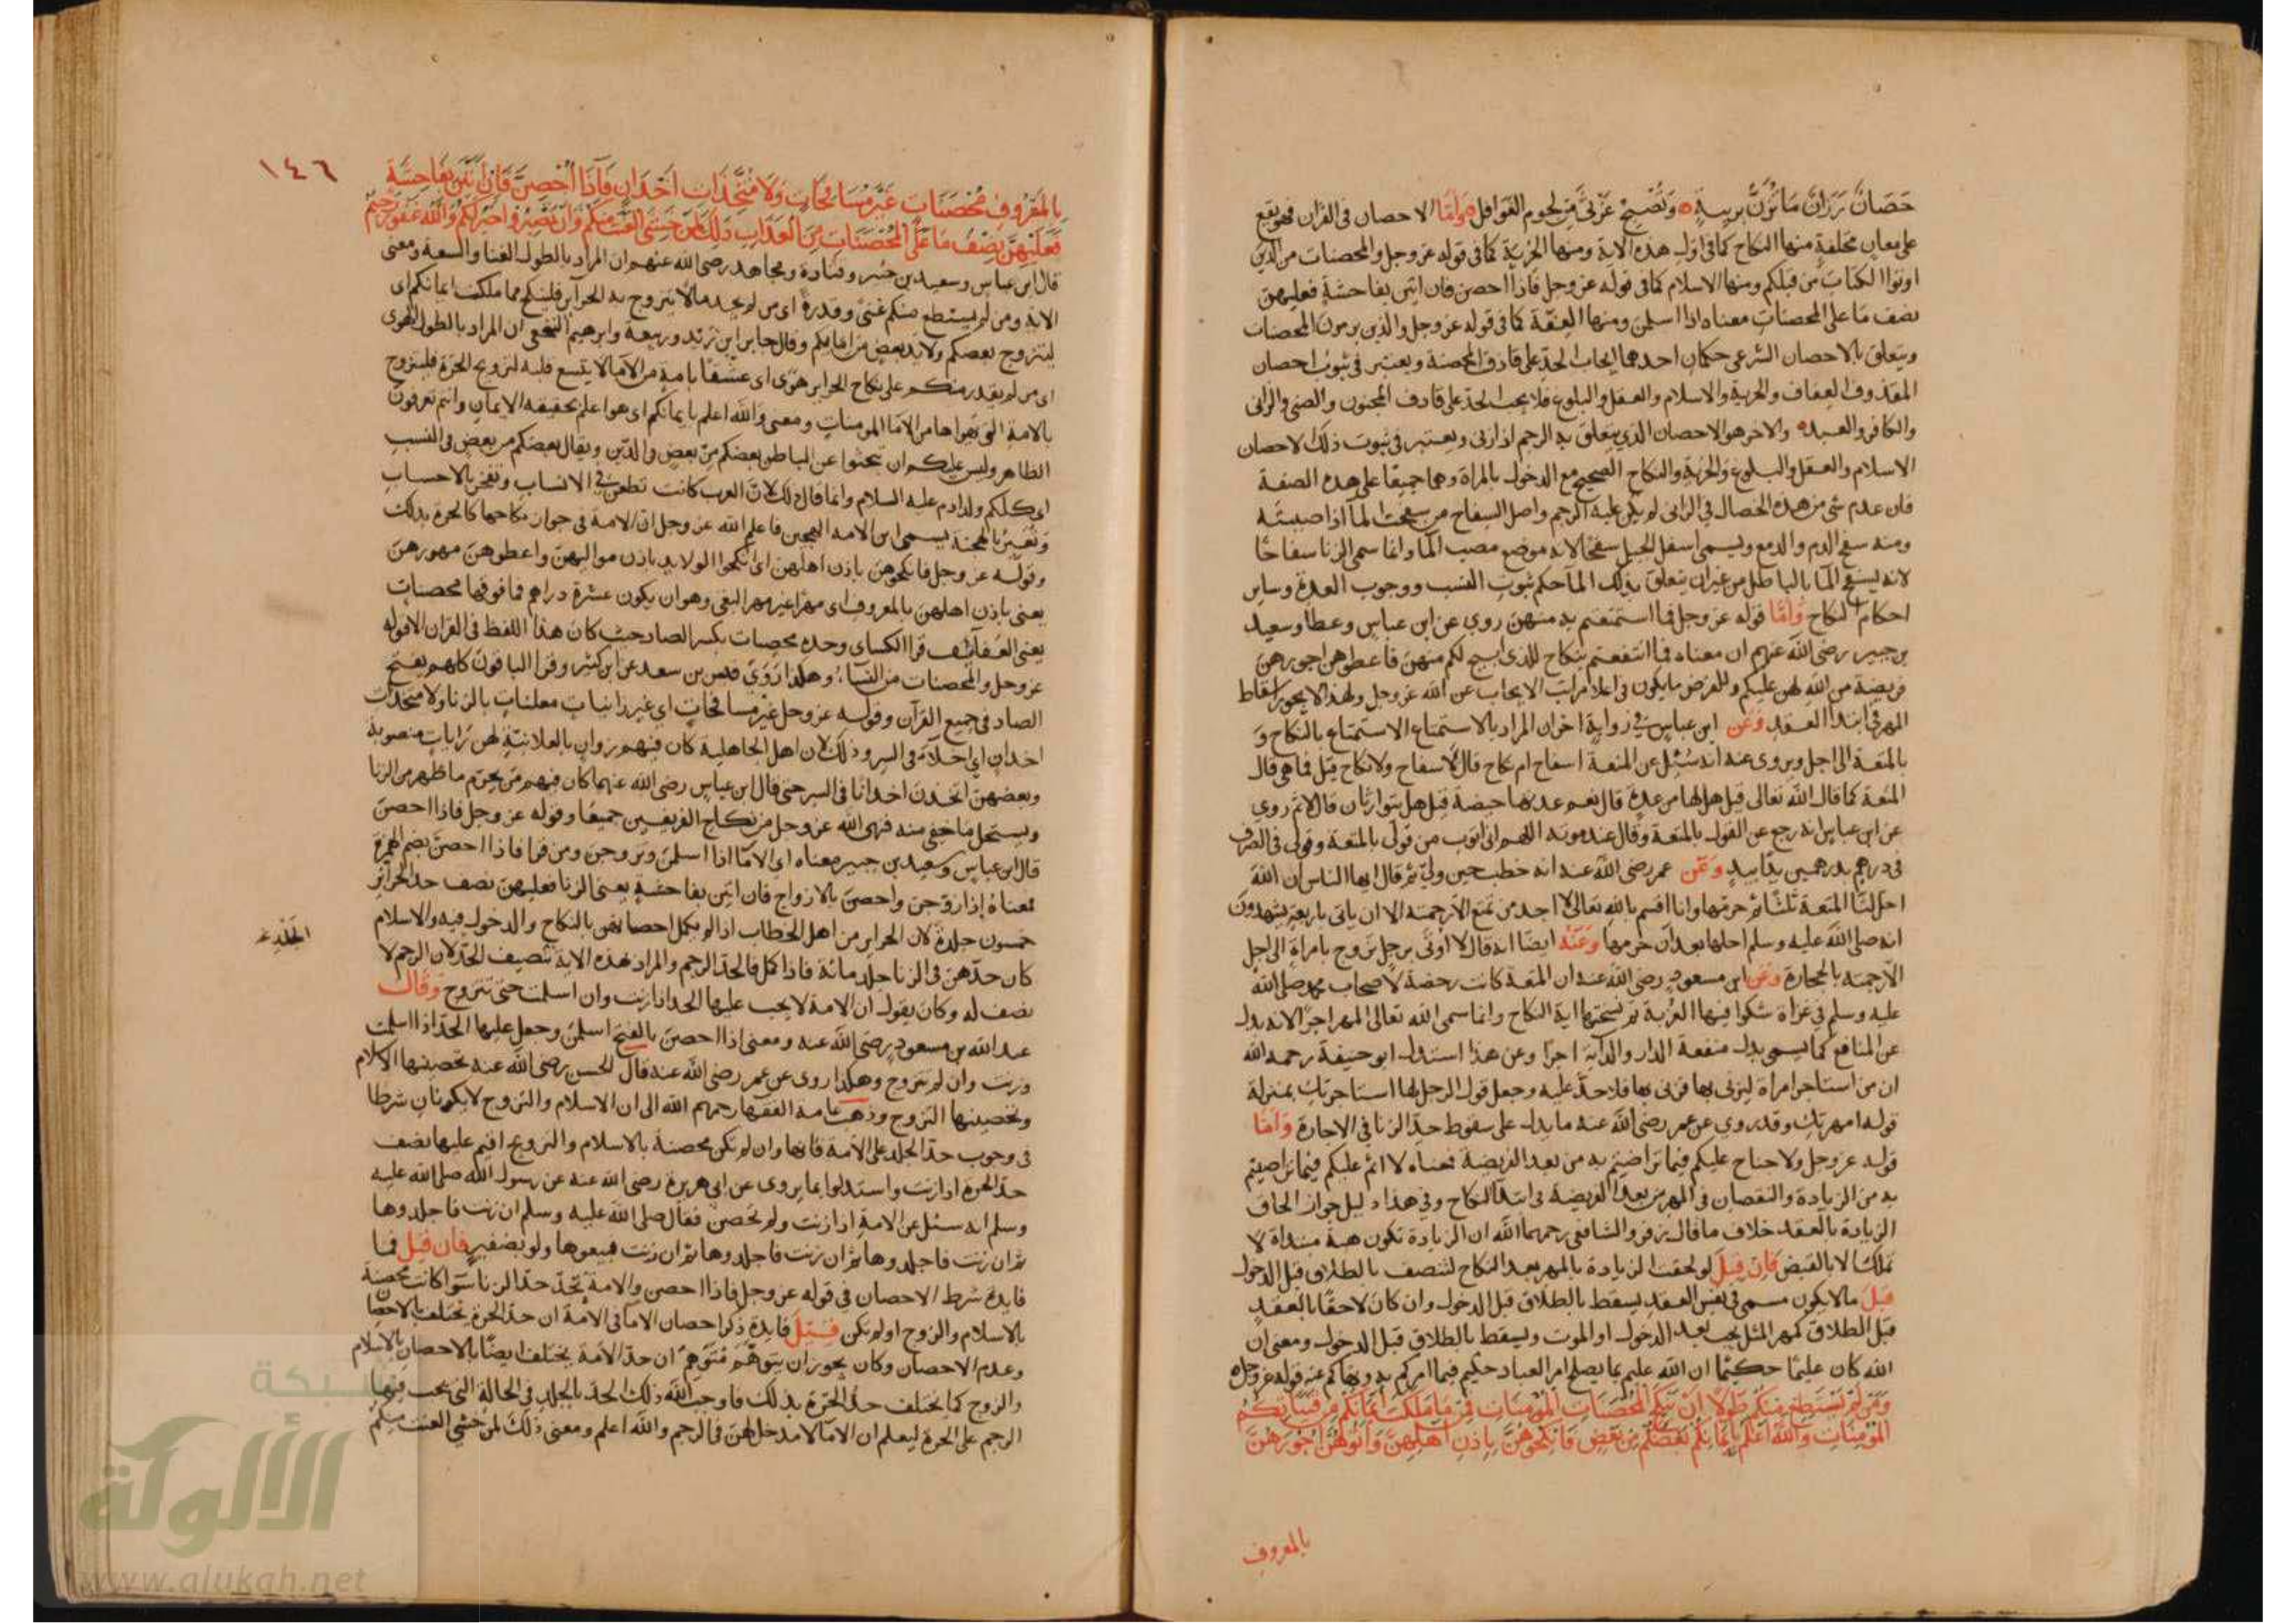 حَصَانٌ رَزَانٌ مَا تُزَنُّ بِرِيبَةٍ وَتُصْبِحُ غَرْثَى مِن لُحوم الغَوَافِل وَأَمَّا الاحصان فى القران فهو يقع
على معانٍ مختلفة منها النكاح كما فى اول هذه الاية ومنها الحُرّية كما فى قوله عز وجل والمحصنات من الذين
اوتوا الكتاب من قبلكم ومنها الاسلام كما فى قوله عز وجل فاذا احصن فان اتين بفاحشة فعليهن
نصف ما على المحصنات معناه اذا اسلمن ومنها العفّة كما فى قوله عز وجل والذين يرمون المحصنات
ويتعلق بالاحصان الشرعى حكمان احدهما ايجاب الحدّ على قاذف المحصنة ويعتبر فى ثبوت احصان
المقذوف العفاف والحرية والاسلام والعقل والبلوغ فلا يجب الحدّ على قاذف المجنون والصبى والزانى
والكافر والعبد والاخر هو الاحصان الذى يتعلق به الرجم اذا زنى ويعتبر فى ثبوت ذلك الاحصان
الاسلام والعقل والبلوغ والحرّية والنكاح الصحيح مع الدخول بالمراة وهما جميعًا على هذه الصفة
فان عدم شى من هذه الخصال فى الزانى لم يكن عليه الرجم واصل السفاح من سفحت الما اذا صببته
ومنه سفح الدم والدمع ويسمى اسفل الجبل سفحًا لانه موضع مصب الما وانما سمى الزنا سفاحًا
لانه يسفح الما بالباطل من غير ان يتعلق بذلك الما حكم ثبوت النسب ووجوب العدة وساير
احكام النكاح وَامَّا قوله عز وجل فما استمتعتم به منهن روى عن ابن عباس وعطا وسعيد
بن جبير رضى الله عنهم ان معناه فما انتفعتم بنكاح للذى ابيح لكم منهن فاعطوهن اجورهن
فريضة من الله لهن عليكم والفرض ما يكون فى اعلا مراتب الايجاب عن الله عز وجل ولهذا لا يجوز اسقاط
المهر فى ابتدا العقد وَعَن ابن عباس فى رواية اخرى ان المراد بالاستمتاع الاستمتاع بالنكاح وَ
بالمتعة الى اجل ويروى عنه انه سُئِل عن المتعة اسفاح ام نكاح قال لا سفاح ولا نكاح قيل فما هى قال
المتعة كما قال الله تعالى قيل هل لها من عدة قال نعم عدتها حيضة قيل هل يتوارثان قال لا ثم روى
عن ابن عباس انه رجع عن القول بالمتعة وقال عند موته اللهم انى اتوب من قولى بالمتعة وقولى فى الصرف
فى درهم بدرهمين يدًا بيدٍ وَعَن عمر رضى الله عنه انه خطب حين ولى ثم قال ايها الناس ان الله
احل لنا المتعة ثلثًا ثم حرمها وانا اقسم بالله تعالى لا اجد من تمتع الا رجمته الا ان ياتى باربعة يشهدون
انه صلى الله عليه وسلم احلها بعد ان حرمها وَعَنْهُ ايضًا انه قال لا اوتى برجل تزوج بامراة الى اجل
الا رجمته بالحجارة وَعَن ابن مسعود رضى الله عنه ان المتعة كانت رخصة لاصحاب محمد صلى الله
عليه وسلم فى غزاة شكوا فيها العُزبة ثم نسختها اية النكاح وانما سمى الله تعالى المهر اجرًا لانه بدل
عن المنافع كما يسمى بدل منفعة الدار والدابة اجرًا وعن هذا استدل ابو حنيفة رحمه الله
ان من استاجر امراة ليزنى بها فزنى بها فلا حدّ عليه وجعل قول الرجل لها استاجرتك بمنزلة
قوله امهرتك وقد روى عن عمر رضى الله عنه ما يدل على سقوط حد الزنا فى الاجارة وَامَّا
قوله عز وجل ولا جناح عليكم فيما تراضيتم به من بعد الفريضة فمعناه لا اثم عليكم فيما تراضيتم
به من الزيادة والنقصان فى المهر من بعد الفريضة فى ابتدا النكاح وفى هذا دليل جواز الحاق
الزيادة بالعقد خلاف ما قال زفر والشافعى رحمهما الله ان الزيادة تكون هبة مبتداة لا
تملك الا بالقبض فَانْ قِيلَ لو لحقت الزيادة بالمهر بعد النكاح لتنصف بالطلاق قبل الدخول
قِيلَ ما لا يكون مسمى فى نفس العقد يسقط بالطلاق قبل الدخول وان كان لاحقًا بالعقد
قبل الطلاق كمهر المثل يجب بعد الدخول او الموت ويسقط بالطلاق قبل الدخول ومعنى ان
الله كان عليمًا حكيمًا ان الله عليم بما يصلح امر العباد حكيم فيما امركم به ونهاكم عنه قوله عز وجل
وَمَنْ لَمْ يَسْتَطِعْ مِنْكُمْ طَوْلًا اَنْ يَنْكِحَ الْمُحْصَنَاتِ الْمُؤمِنَاتِ فَمِنْ مَا مَلَكَتْ اَيْمَانُكُمْ مِنْ فَتَيَاتِكُمُ
الْمُؤمِنَاتِ وَاللّهُ اَعْلَمُ بِاِيمَانِكُمْ بَعْضُكُمْ مِنْ بَعْضٍ فَانْكِحُوهُنَّ بِاِذْنِ اَهْلِهِنَّ وَآتُوهُنَّ اُجُورَهُنَّ
بالمعروف
١٤٦
بِالْمَعْرُوفِ مُحْصَنَاتٍ غَيْرَ مُسَافِحَاتٍ وَلَا مُتَّخِذَاتِ اَخْدَانٍ فَاِذَا اُحْصِنَّ فَاِنْ اَتَيْنَ بِفَاحِشَةٍ
فَعَلَيْهِنَّ نِصْفُ مَا عَلَى الْمُحْصَنَاتِ مِنَ الْعَذَابِ ذَلِكَ لِمَنْ خَشِيَ الْعَنَتَ مِنْكُمْ وَاَنْ تَصْبِرُوا خَيْرٌ لَكُمْ وَاللّهُ غَفُورٌ رَحِيمٌ
قال ابن عباس وسعيد بن جبير وقتادة ومجاهد رضى الله عنهم ان المراد بالطول الغنا والسعة ومعنى
الاية ومن لم يستطع منكم غنًى وقدرةً اى من لم يجد مالا يتزوج به الحراير فلينكح مما ملكت ايمانكم اى
ليتزوج بعضكم ولايد بعض من امايكم وقال جابر ابن زيد وربيعة وابرهيم النخعى ان المراد بالطول الهوى
اى من لم يقدر منكم على نكاح الحراير هوًى اى عشقًا بامة من الاما لا يتسع قلبه لتزويج الحرة فليتزوج
بالامة التى تهواها من الاما المومنات ومعنى والله اعلم بايمانكم اى هو اعلم بحقيقة الايمان وانتم تعرفون
الظاهر وليس عليكم ان تبحثوا عن الباطن بعضكم مِنْ بعض والدّين ويقال بعضكم من بعض فى النسب
اى كلكم ولد ادم عليه السلام وانما قال ذلك لان العرب كانت تطعن فى الانساب وتفخر بالاحساب
وتُعيّر بالهجنة يسمى ابن الامة الهجين فاعلم الله عز وجل ان الامة فى جواز نكاحها كالحرة بذلك
وقوله عز وجل فانكحوهن باذن اهلهن اى انكحوا الولايد باذن مواليهن واعطوهن مهورهن
يعنى باذن اهلهن بالمعروف اى مهرًا غير مهر البغى وهو ان يكون عشرة دراهم فما فوقها محصنات
يعنى العفآئف قرا الكساى وحده محصِنات بكسر الصاد حيث كان هذا اللفظ فى القران الا قوله
عز وجل والمحصنات من النسآء وهكذا رَوَىَ قيس بن سعد عن ابن كثير وقرا الباقون كلهم بفتح
الصاد فى جميع القرآن وقوله عز وجل غير مسافحات اى غير زانيات معلنات بالزنا ولا متخذات
اخدان اى اخلاء فى السر وذلك لان اهل الجاهلية كان فيهم زوانٍ بالعلانية لهن رايات منصوبة
وبعضهن اتخذن اخدانا فى السر حتى قال ابن عباس رضى الله عنهما كان فيهم من يحرّم ما ظهر من الزنا
ويستحل ما خفى منه فنهى الله عز وجل من نكاح الفريقين جميعًا وقوله عز وجل فاذا احصن
قال ابن عباس وسعيد بن جبير معناه اى الاما اذا اسلمن وتزوجن ومن قرا فاذا احصن بضم الهمزة
فمعناهُ إذا زوجن واحصنّ بالازواج فان اتين بفاحشة يعنى الزنا فعليهن نصف حد الحراير
خمسون جلدة لان الحراير من اهل الخطاب اذا لم يكمل احصانهن بالنكاح والدخول فيه والاسلام
كان حدّهن فى الزنا جلد مائة فاذا كمل فالحد الرجم والمراد بهذه الاية تنصيف الحدّ لان الرجم لا
الجلد
نصف له وكان يقول ان الامة لا يجب عليها الحد اذا زنت وان اسلمت حتى تتزوج وَقَالَ
عبد الله بن مسعود رضى الله عنه ومعنى اذا احصن بالفتح اسلمن وجعل عليها الحدّ اذا اسلمت
وزنت وان لم تتزوج وهكذا روى عن عمر رضى الله عنه قال الحسن رضى الله عنه تحصينها الاسلام
وتحصينها التزوج وذهب عامة الفقها رحمهم الله الى ان الاسلام والتزوج لا يكونان شرطا
فى وجوب حدّ الجلد على الامة فانها وان لم تكن محصنة بالاسلام والتزوج اقيم عليها نصف
حدّ الحرة اذا زنت واستدلوا بما يروى عن ابى هريرة رضى الله عنه عن رسول الله صلى الله عليه
وسلم انه سئل عن الامة اذا زنت ولم تحصن فقال صلى الله عليه وسلم ان زنت فاجلدوها
ثم ان زنت فاجلدوها ثم ان زنت فاجلدوها ثم ان زنت فبيعوها ولو بضفيرٍ فَان قِيلَ فما
فايدة شرط الاحصان فى قوله عز وجل فاذا احصن والامة تُحَدّ حدّ الزنا سَوَا كانت محصنة
بالاسلام والزوج او لم تكن قِيلَ فايدة ذكر احصان الاما فى الامة ان حدّ الحرة يختلف بالاحصان
وعدم الاحصان وكان يجوز ان يتوهّم مُتَوهم ان حدّ الامة يختلف ايضًا بالاحصان بالاسلام
والزوج كما يختلف حد الحرّة بذلك فاوجب الله ذلك الحدّ بالجلد فى الحالة التى يجب فيها
الرجم على الحرة ليعلم ان الاما لا مدخل لهن فى الرجم والله اعلم ومعنى ذلك لمن خشى العنت منكم
شبكة
الألوكة
www.alukah.net